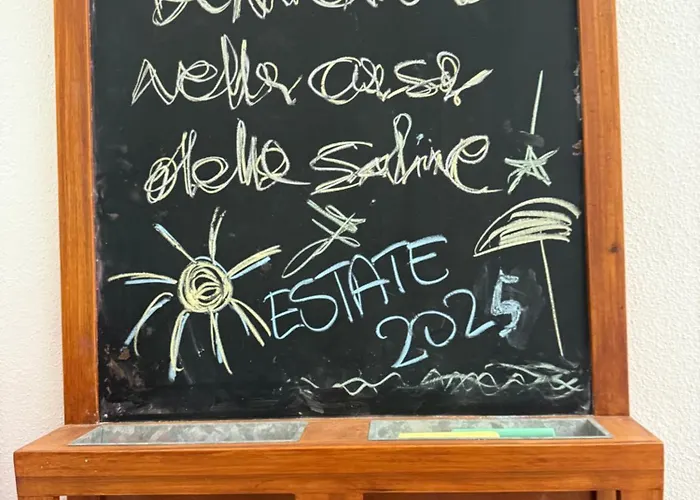 nella casa
delle Saline
ESTATE
2025